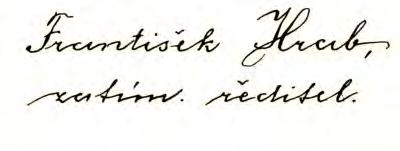 František Hrab,
zatím. ředitel.